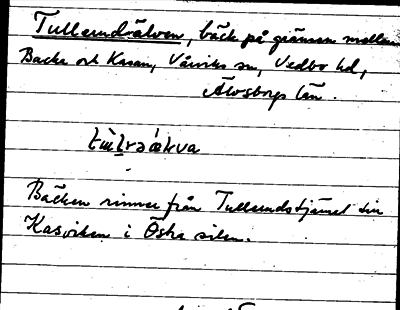 Tullsundsälven, bäck på gränsen mellan
Backa och Kasan, Vårviks sn, Vedbo hd,
Älvsborgs län.
Bäcken rinner från Tullsundstjärnet till
Kasviken i Östra silen.